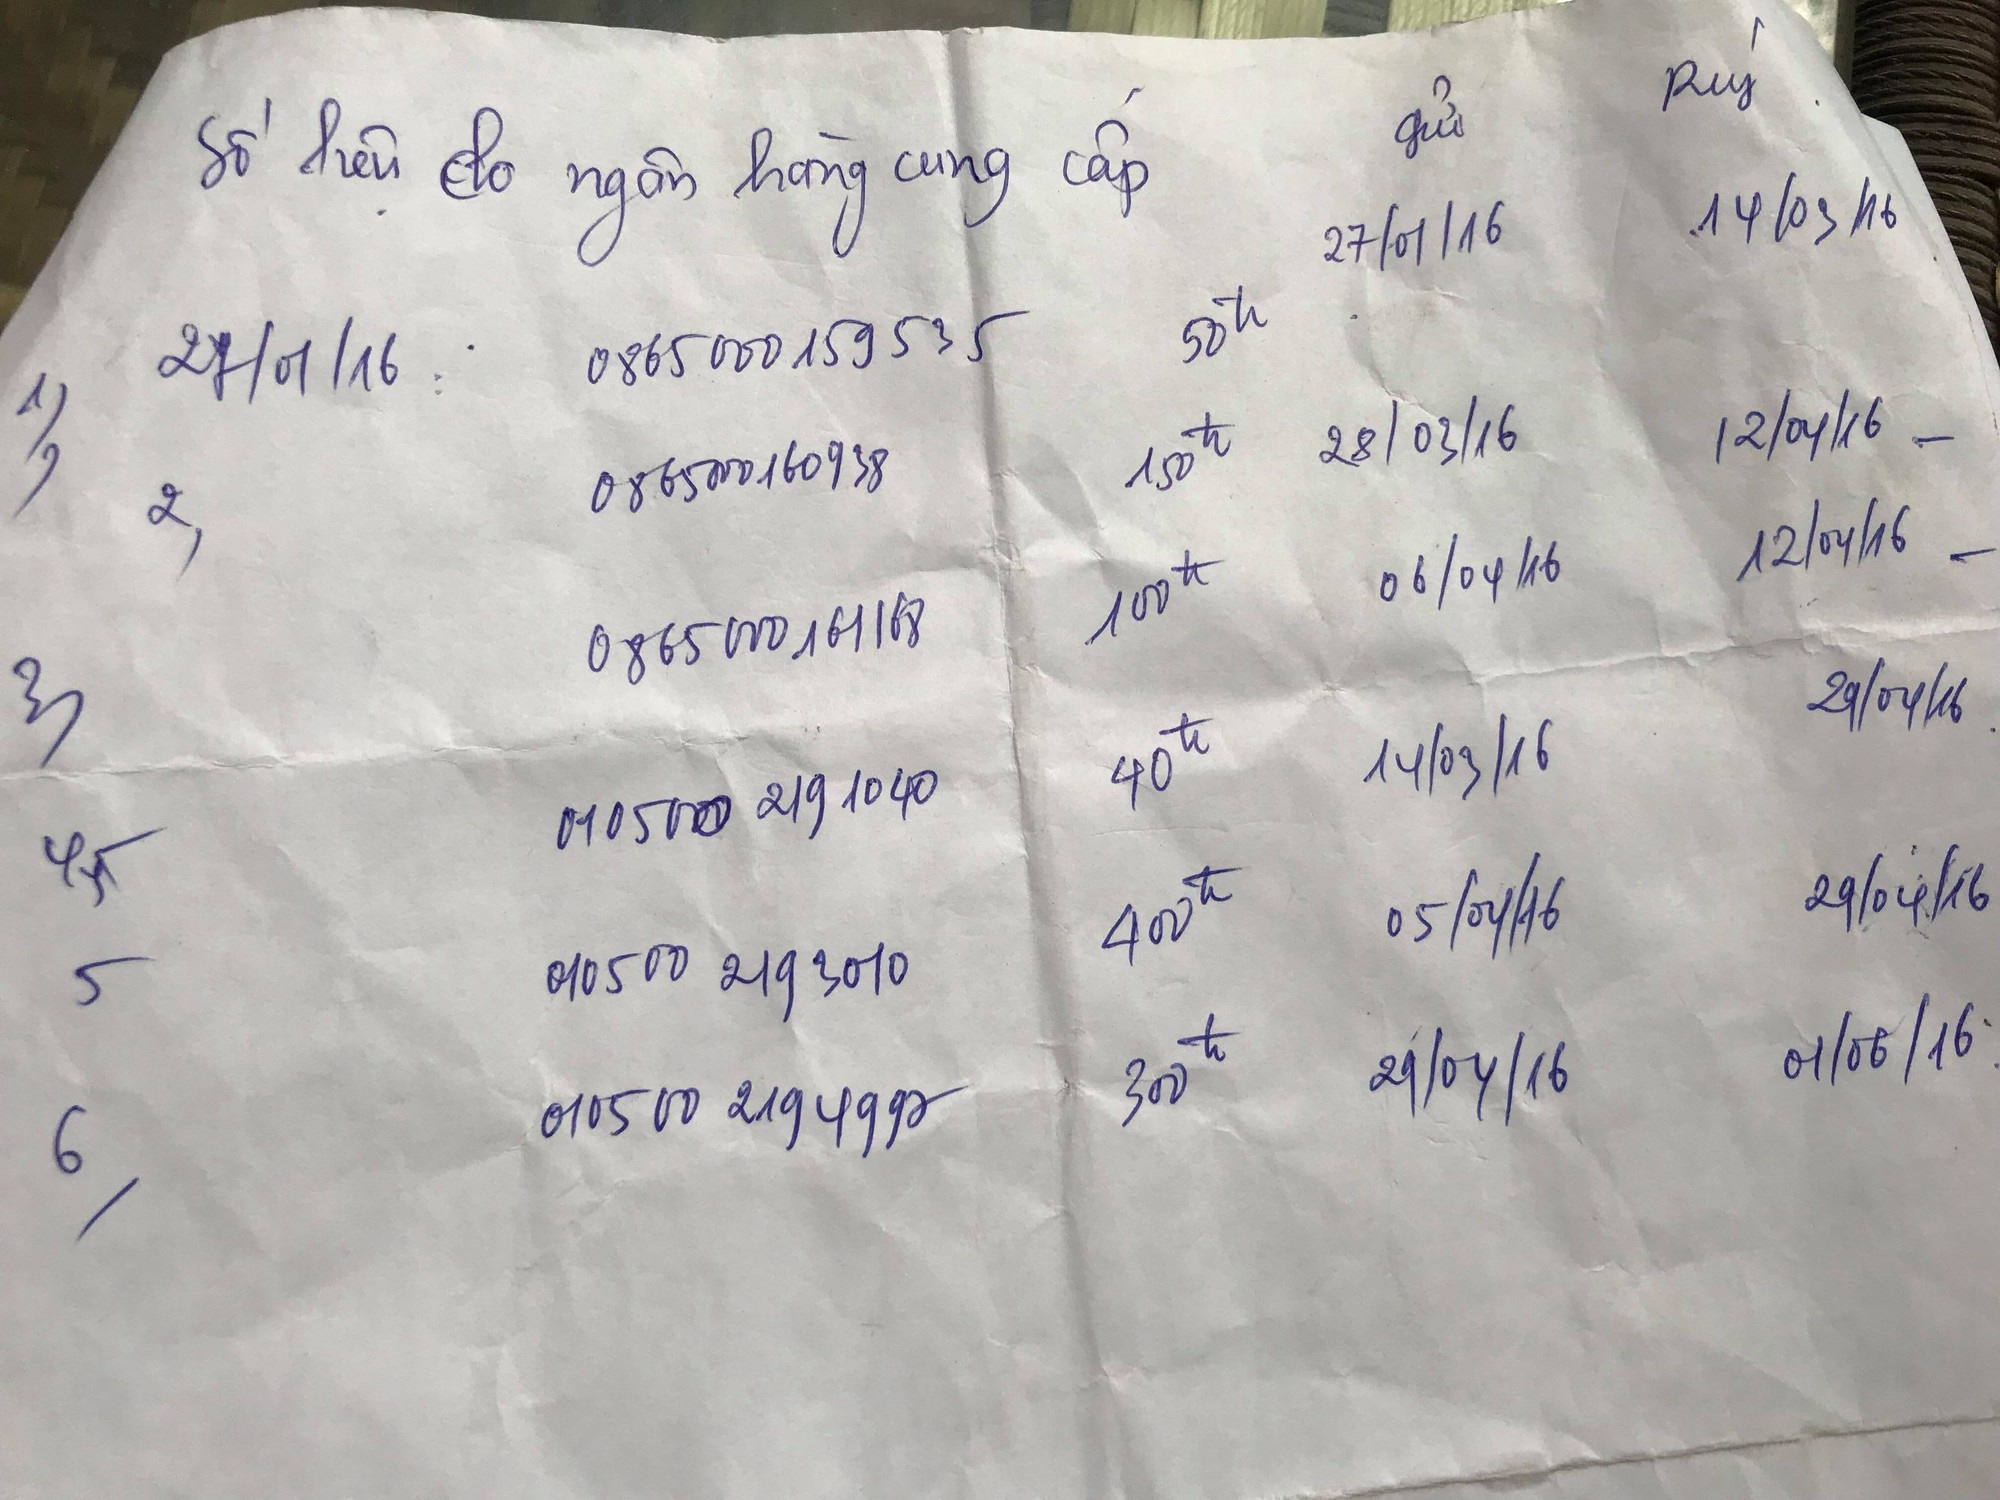 Số liệu do ngân hàng cung cấp gửi Rút
27/01/16 14/03/16
1) 27/01/16 : 0865000159535 50tr
2, 0865000160938 150tr 28/03/16 12/04/16 -
3) 0865000161168 100tr 06/04/16 12/04/16 -
4, 0105000 2191040 40tr 14/03/16 29/04/16
5 010500 2193010 400tr 05/04/16 29/04/16
6, 010500 2194992 300tr 29/04/16 01/06/16